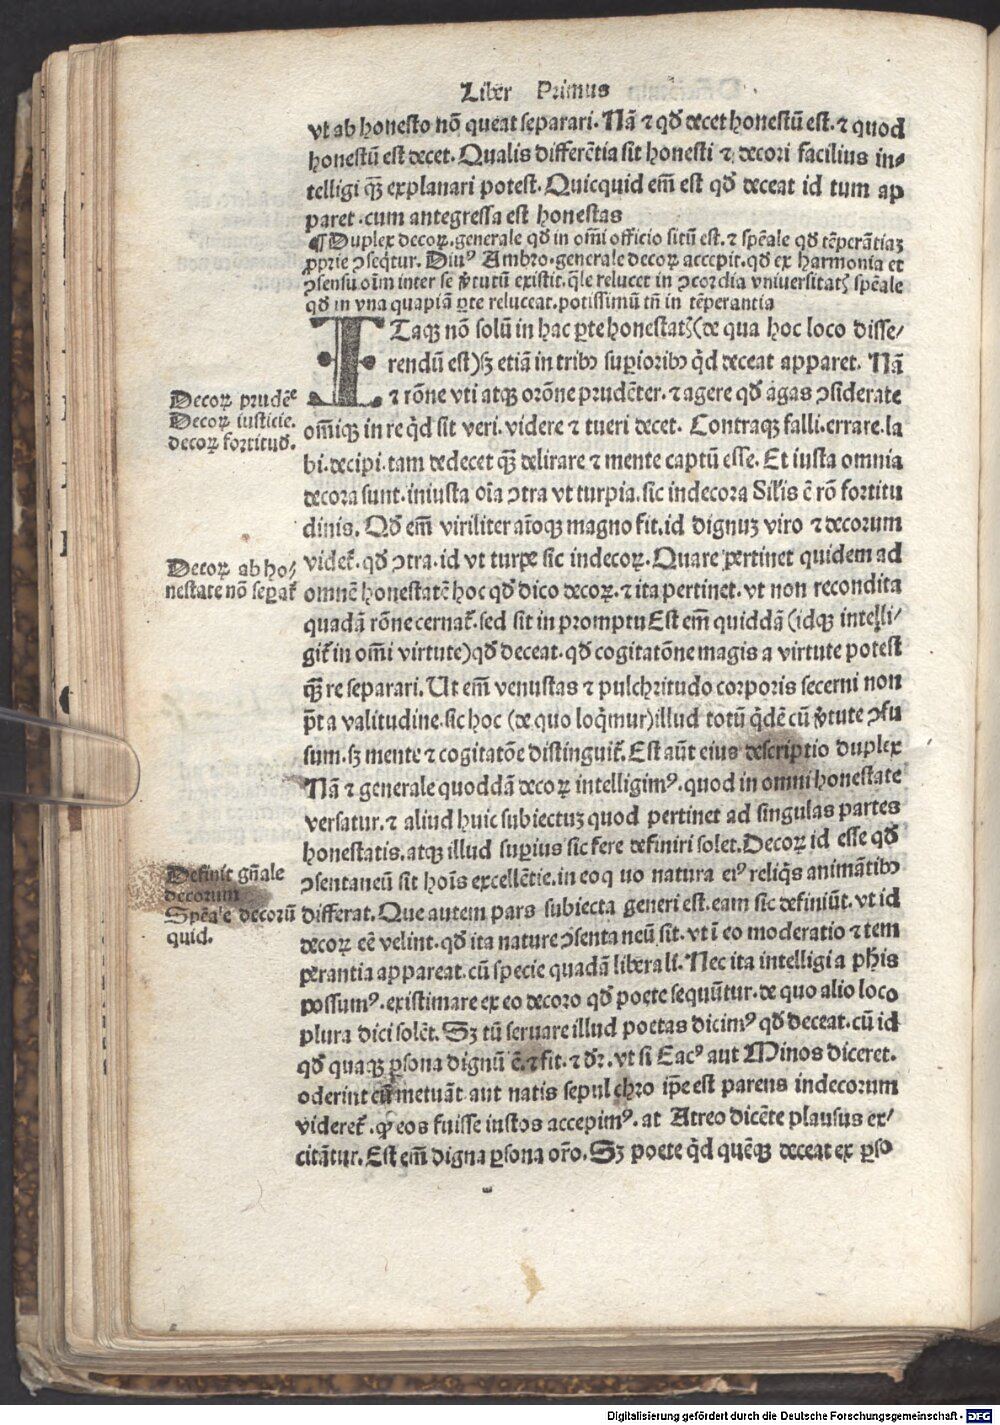 Liber Primus
vt ab honesto nõ queat separari. Nã ⁊ qd̃ decet honestũ est. ⁊ quod
honestũ est decet. Qualis differẽtia sit honesti ⁊ decori facilius in-
telligi q̃ꝫ explanari potest. Quicquid em̃ est qd̃ deceat id tum ap
paret .cum antegressa est honestas
¶ Duplex decoꝝ. generale qd̃ in om̃i officio sitũ est. ⁊ sp̃eale qd̃ tẽperãtiaꝫ
ꝓprie ꝯseq̃tur. Diuꝰ Ambro. generale decoꝝ accepit. qd̃ ex harmonia et
ꝯsensu oĩm inter se v̓tutũ existit. q̃le relucet in ꝯcordia vniuersitatꝭ sp̃eale
qd̃ in vna quapiã ꝑte reluceat. potissimũ tñ in tẽperantia
ITaqꝫ nõ solũ in hac ꝑte honestatꝭ (de qua hoc loco disse/
rendũ est) sꝫ etiã in tribꝰ suꝑioribꝰ q̃d deceat apparet. Nã
⁊ rõne vti atqꝫ orõne prudẽter. ⁊ agere qd̃ agas ꝯsiderate
om̃iqꝫ in re q̃d sit veri. videre ⁊ tueri decet. Contraqꝫ falli. errare. la
bi. decipi. tam dedecet q̃ꝫ delirare ⁊ mente captũ esse. Et iusta omnia
decora sunt. iniusta oĩa ꝯtra vt turpia. sic indecora Sil̃is ẽ rõ fortitu
dinis. Qd̃ em̃ viriliter aĩoqꝫ magno fit. id dignuꝫ viro ⁊ decorum
videt̃. qd̃ ꝯtra. id vt turpe sic indecoꝝ. Quare pertinet quidem ad
omnẽ honestatẽ hoc qd̃ dico decoꝝ. ⁊ ita pertinet. vt non recondita
quadã rõne cernat̃. sed sit in promptu Est em̃ quiddã (idqꝫ intelli/
git̃ in om̃i virtute) qd̃ deceat. qd̃ cogitatõne magis a virtute potest
q̃ꝫ re separari. Ut em̃ venustas ⁊ pulchritudo corporis secerni non
põt a valitudine. sic hoc (de quo loq̃mur) illud totũ q̃dẽ cũ v̓tute ꝯfu
sum. sꝫ mente ⁊ cogitatõe distinguit̃. Est aũt eius descriptio duplex
Nã ⁊ generale quoddã decoꝝ intelligimꝰ. quod in omni honestate
versatur. ⁊ aliud huic subiectuꝫ quod pertinet ad singulas partes
honestatis. atqꝫ illud suꝑius sic fere definiri solet. Decoꝝ id esse qd̃
ꝯsentaneũ sit hoĩs excellẽtie. in eoq uo natura eiꝰ reliq̃s animãtibꝰ
differat. Que autem pars subiecta generi est. eam sic definiũt. vt id
decoꝝ eẽ velint. qd̃ ita nature ꝯsenta neũ sit. vt ĩ eo moderatio ⁊ tem
perantia appareat. cũ specie quadã liberali. Nec ita intelligi a ph̃is
possumꝰ. existimare ex eo decoro qd̃ poete sequũtur. de quo alio loco
plura dici solẽt. Sꝫ tũ seruare illud poetas dicimꝰ qd̃ deceat. cũ id
qd̃ quaqꝫ ꝑsona dignũ ẽ. ⁊ fit. ⁊ dr̃. vt si Eacꝰ aut Minos diceret.
oderint cũ metuãt aut natis sepul chro ip̃e est parens indecorum
videret̃. qꝛ eos fuisse iustos accepimꝰ. at Atreo dicẽte plausus ex/
citãtur. Est em̃ digna ꝑsona or̃o. Sꝫ poete q̃d quẽqꝫ deceat ex ꝑso
Decoꝝ prudẽᵉ
Decoꝝ iusticie.
decoꝝ fortitud̃.
Decoꝝ ab ho/
nestate nõ seꝑat̃
Definit gñale
decorum
Spẽale decorũ
quid.
Digitalisierung gefördert durch die Deutsche Forschungsgemeinschaft - DFG